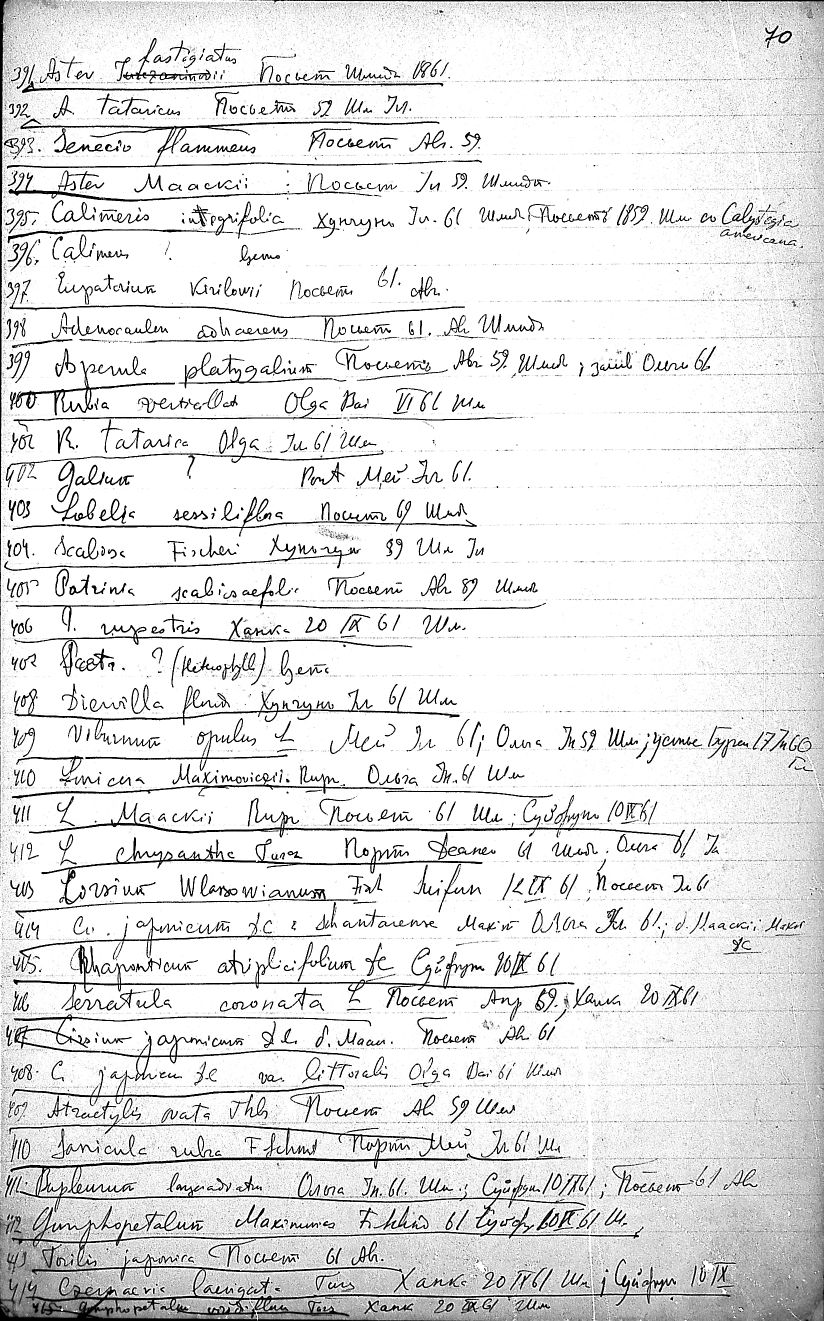 70
391 Aster fastigiatus Посьет Шмидт 1861.
392 A tataricus Посьетъ 59 Шм Іл.
393. Senecio flammeus Посьет Авг. 59.
394 Aster Maackii : Посьет Іл 59. Шмидт.
395. Calimeris integrifolia Хунчунъ Іл. 61 Шмидт, Посьетъ 1859. Шм со Calystegia americana.
396. Calimeris ?
397 Eupatorium Kirilowii Посьетъ 61. Авг.
398 Adenocaulon adhaerens Посьет 61. Авг Шмидт
399 Asperula platygalium Посьетъ Авг 59, Шмидт ; залив Ольги 61
400 Rubia verticillata Olga Bai VI 61 Шм
401 R. tatarica Olga Іл 61 Шм
402 Galium ? Port Мей Іл 61.
403 Lobelia sessiliflora Посьет 69 Шмидт
404. Scabiosa Fischeri Хунчунъ 89 Шм Іл
405 Patrinia scabiosaefolia Посьет Авг 89 Шмидт
406 P. rupestris Ханка 20 IX 61 Шм.
407 Patr. ? (Heterophyll)
408 Diervilla florida Хунчунъ Іл 61 Шм
409 Viburnum opulus L Мей Іл 61; Ольга Іл 59 Шм; устье Буреи 17 Іл 60
410 Lonicera Maximoviczii. Rupr. Ольга Іл. 61 Шм
411 L. Maackii Rupr Посьет 61 Шм ; Суйфунъ 10 IX 61
412 L chrysantha Turcz Портъ Деанъ 61 Шмидт, Ольга 61 Іл
403 Cirsium Wlassowianum Fisch Suifun 12 IX 61, Посьет Іл 61
404 Ci. japonicum DC : shantarense Maxim Ольга Іл 61.; d. Maackii Maxim DC
405. Rhaponticum atriplicifolium DC Суйфунъ 20 IX 61
406 Serratula coronata L Посьет Апр 59., Ханка 20 IX 61
407 Cirsium japonicum DC. d. Maac. Посьет Авг 61
408. C. japonicu DC var littoralis Olga Bai 61 Шмидт
409 Atractylis ovata Thb Посьет Авг 59 Шмидт
410 Sanicula rubra F Schmidt Портъ Мей Іл 61 Шм
411. Bupleurum longeradiatum Ольга Іл. 61. Шм.; Суйфун 10 IX 61 ; Посьет 61 Авг
412 Gomphopetalum Maximowiczii F. Schmid 61 Суйфу 10 IX 61 Шм.
413 Torilis japonica Посьет 61 Авг.
414 Czernaevia laevigata Turs Ханка 20 IX 61 Шм ; Суйфун 10 IX
415. Gomphopetalum viridiflorum Turs Ханк 20 IX 61 Шм